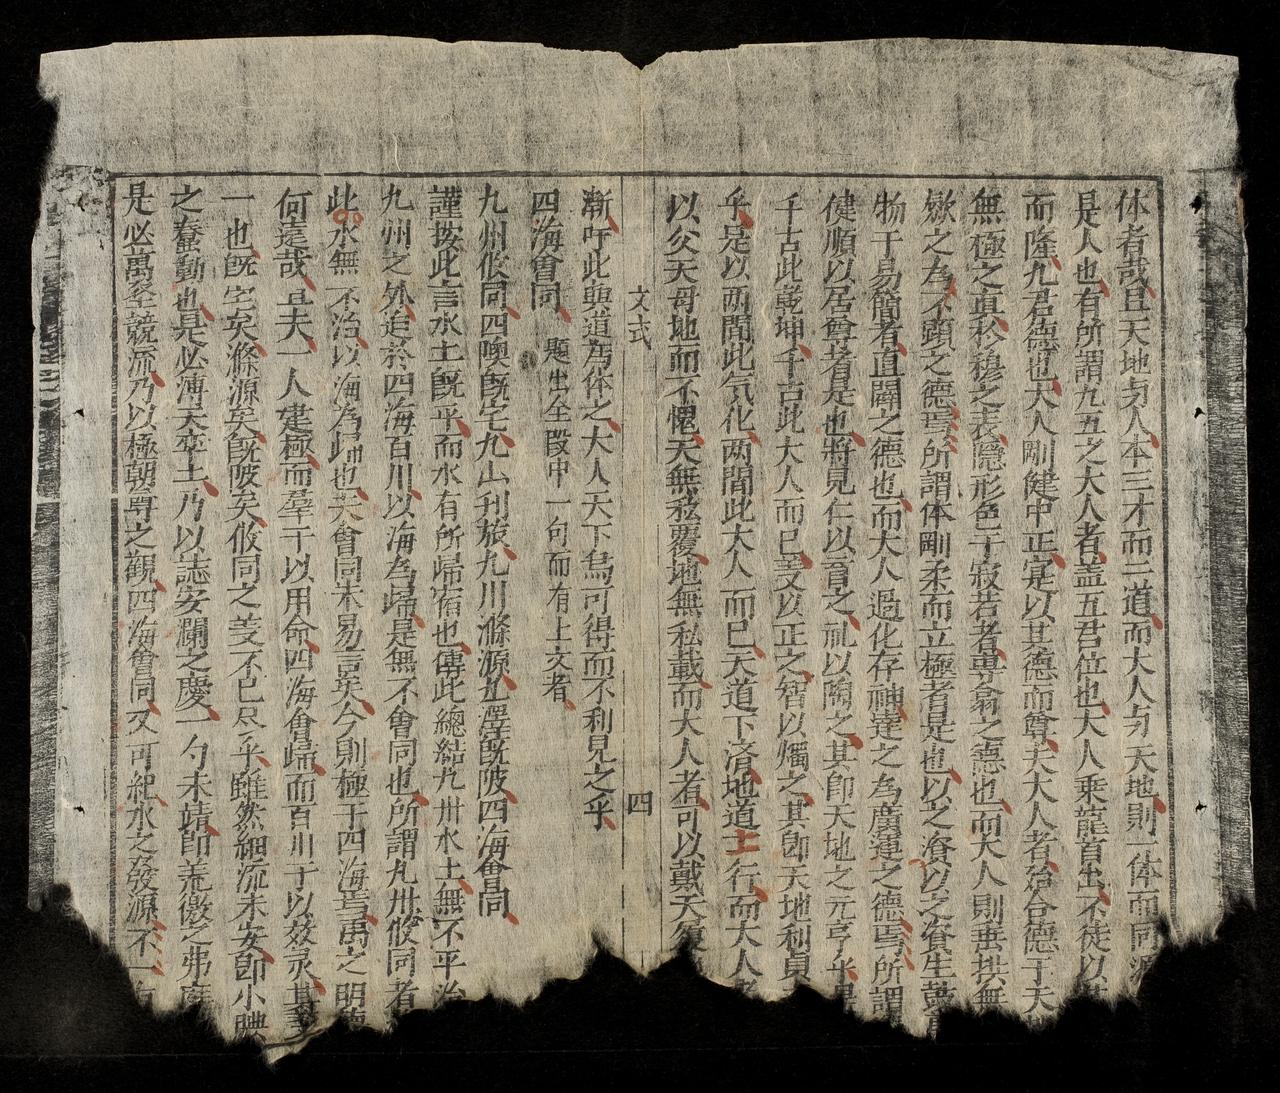 体者哉且天地与人本三才而二道而大人与天地則一体而同源
是人也有所謂九五之大人者盖五君位也大人乗龍首出不徒以其
而隆九君德也大人剛健中正寔以其德而尊夫大人者殆合德于天地
無極之真於穆之表隱形色于寂若者専翕之德也而大人則垂拱無
之為不顕之德焉所謂体剛柔而立極者是也以之資以之資生萬
物于易簡者直闢之德也而大人過化存神達之為廣運之德焉所謂
健順以居尊者是也將見仁以育之礼以陶之其卽天地之元亨乎是
千古此乾坤千古此大人而已義以正之智以燭之其卽天地利貞
乎是以两間此気化两間此大人而已天道下済地道上行而大人者
以父天母地而不愧天無私覆地無私載而大人者可以戴天履
漸吁此與道為体之大人天下為可得而不利見之乎
四海會同 題出全段中一句而有上文者
九州攸同四隩旣宅九山刊旅九川滌源九澤旣陂四海會同
謹按此言水土旣平而水有所歸宿也傳此總結九州水土無不平治
九州之外迨於四海百川以海為歸是無不會同也所謂九州攸同者
此水無不治以海為歸也夫會同未易言矣今則極于四海焉禹之明德
何遠哉且夫一人建極而羣干以用命四海會歸而百川于以效灵其
一也旣宅矣滌源矣旣陂矣攸同之美不已尽乎雖然細流未安卽小腆
之蠢動也是必溥天率土乃以誌安瀾之慶一勺未靖卽荒徼之弗庭
是必萬壑競流乃以極朝尊之觀四海會同又可紀水之發源不一
文式 四